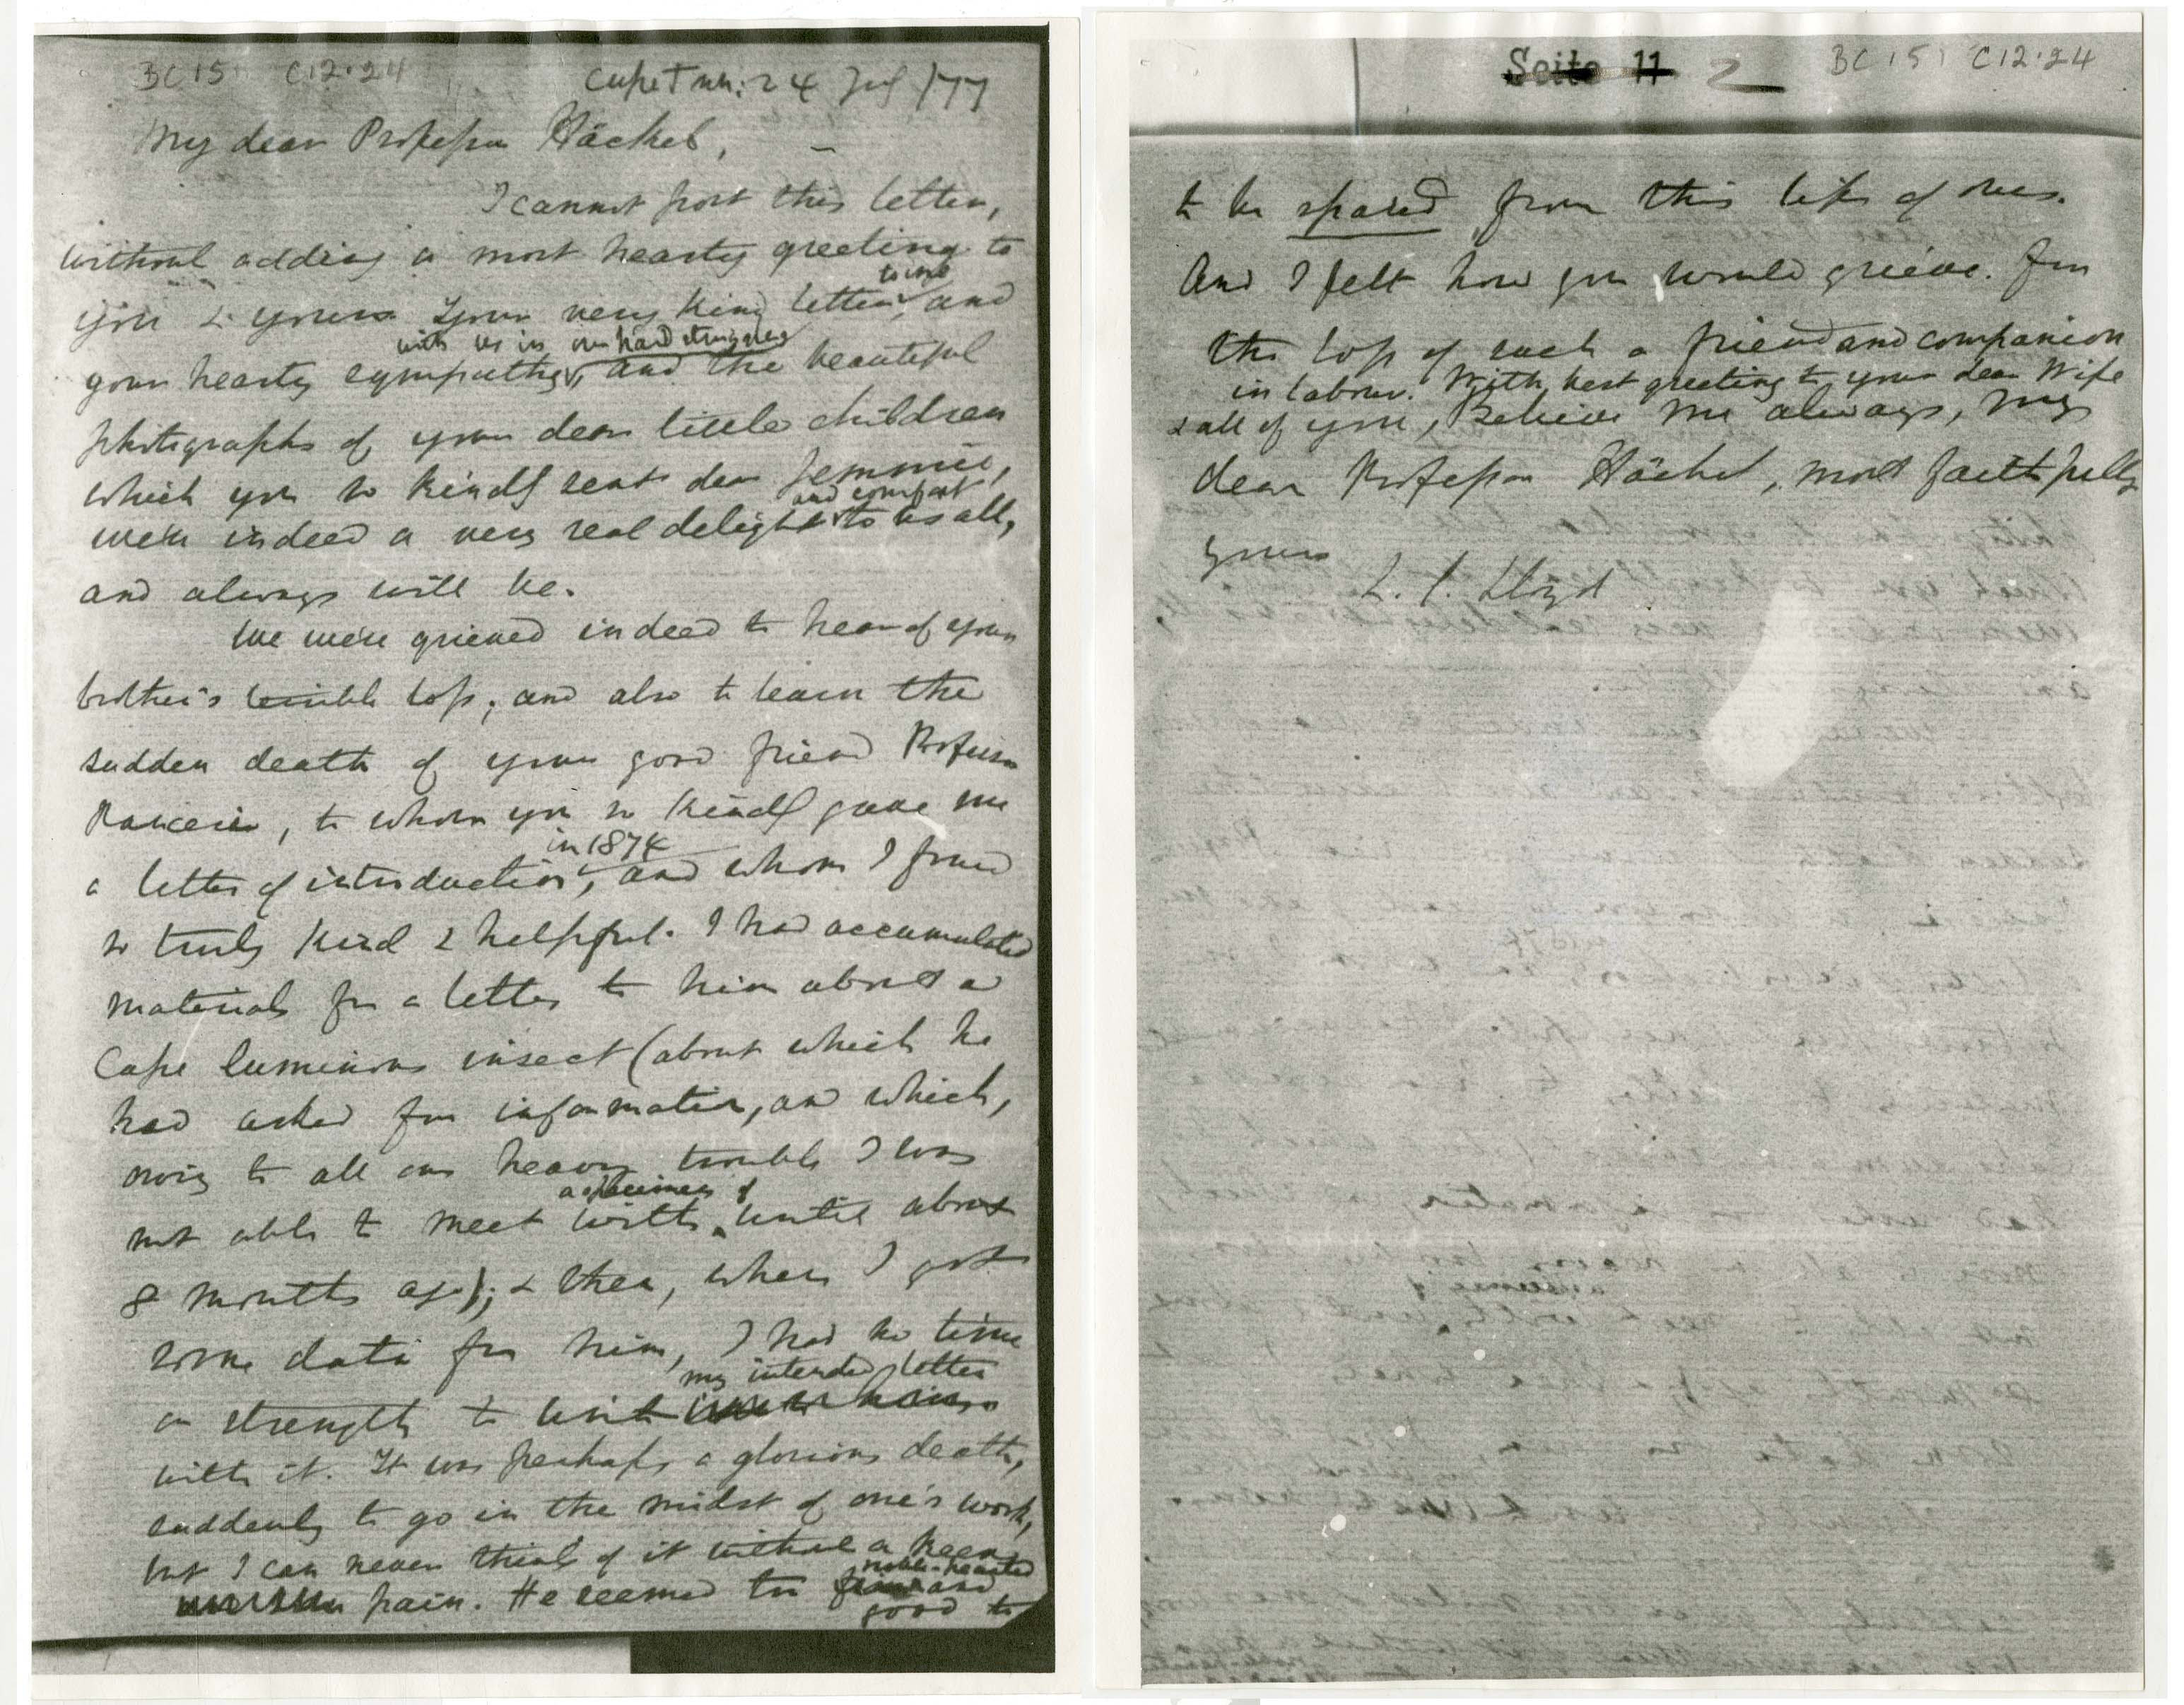 BC 151 C12.24
CapeTwn: 24 July /77
My dear Professor Häckel,
I cannot post this letter,
without adding a most hearty greeting to
to me
you & yours. Your very kind letter, and
with us in our hard struggles
your hearty sympathy, and the beautiful
photographs of your dear little children
which you so kindly sent dear Jemmie,
and comfort
were indeed a very real delight to us all,
and always will be.
We were grieved indeed to hear of your
brother's terrible loss; and also to learn the
sudden death of your good friend Professor
Panceri, to whom you so kindly gave me
in 1874
a letter of introduction, and whom I found
so truly kind & helpful. I had accumulated
materials for a letter to him about a
Cape luminous insect (about which he
had asked for information, and which,
owing to all our heavy trouble I was
a specimen of
not able to meet with until about
8 months ago); & then, when I got
some data for him, I had no time
my intended letter
or strength to write
with it. It was perhaps a glorious death,
suddenly to go in the midst of one's work,
but I can never think of it without a keen
noble-hearted
pain. He seemed too and
good to
Seite 11 2 BC 151 C12.24
to be spared from this life of ours.
And I felt how you would grieve for
the loss of such a friend and companion
in labour. With best greeting to your dear Wife
& all of you, Believe me always, my
dear Professor Häckel, most faithfully
yours
L. C. Lloyd